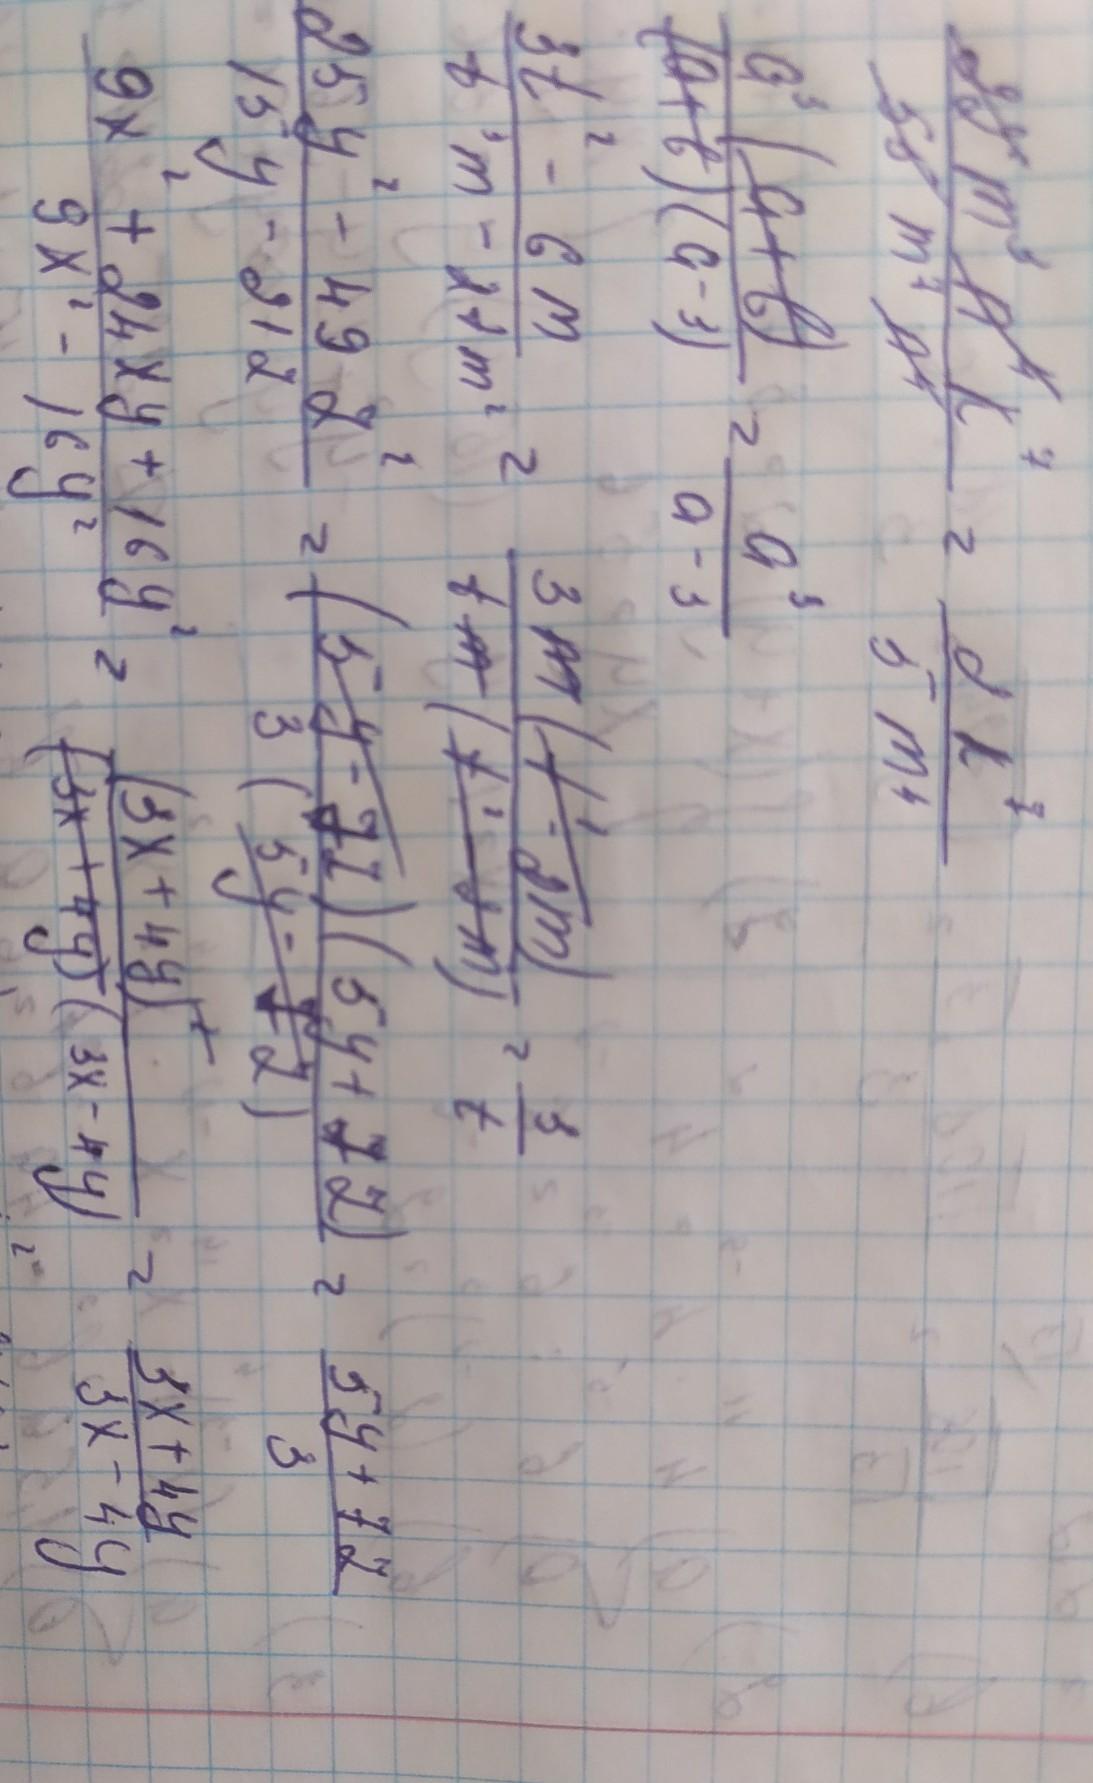 a³(a+b) / (a+b)(a-3) = a³ / a-3
3t² - 6m / t³m - 2tm² = 3m(t² - 2m) / tm(t² - 2m) = 3 / t
25y² - 49z² / 15y - 21z = (5y - 7z)(5y + 7z) / 3(5y - 7z) = 5y + 7z / 3
9x² + 24xy + 16y² / 9x² - 16y² = (3x + 4y)² / (3x + 4y)(3x - 4y) = 3x + 4y / 3x - 4y